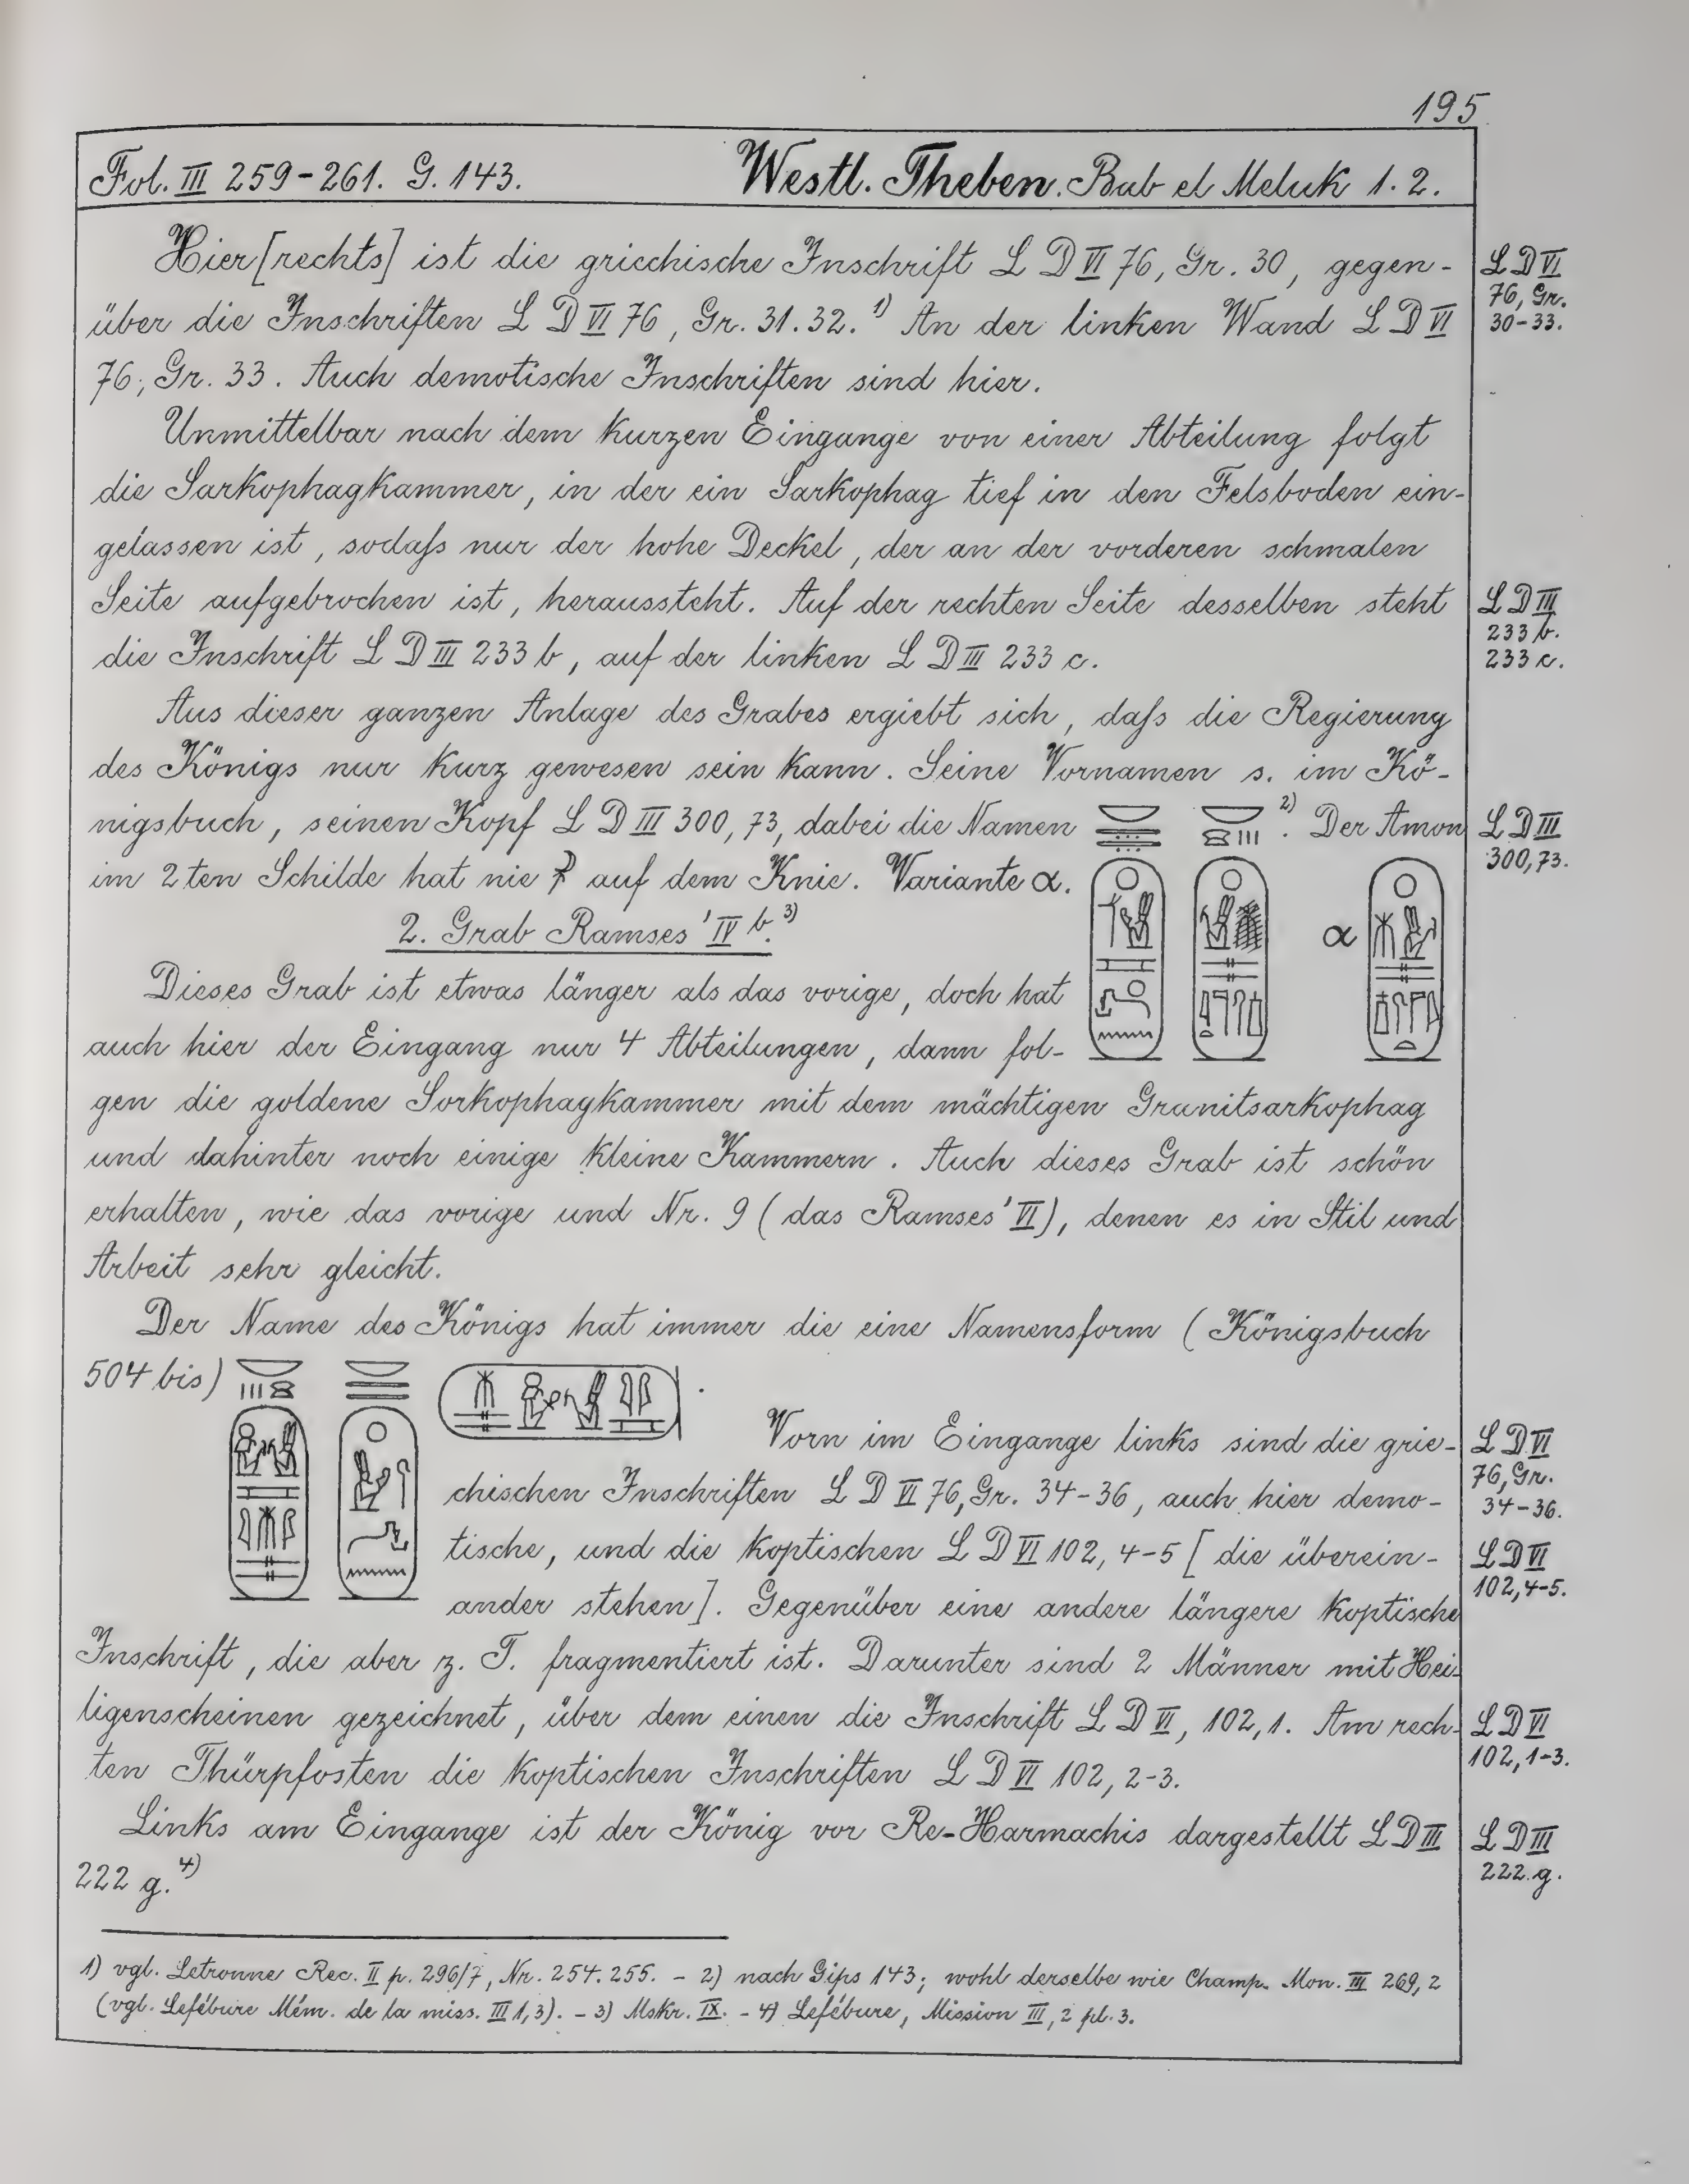 195
Fol. III 259-261. G. 143. Westl. Theben. Bab el Meluk 1. 2.
Hier [rechts] ist die griechische Inschrift L D VI 76, Gr. 30, gegen-
über die Inschriften L D VI 76, Gr. 31. 32. 1) An der linken Wand L D VI
76, Gr. 33. Auch demotische Inschriften sind hier.
L D VI
76, Gr.
30-33.
Unmittelbar nach dem kurzen Eingange von einer Abteilung folgt
die Sarkophagkammer, in der ein Sarkophag tief in den Felsboden ein-
gelassen ist, sodaſs nur der hohe Deckel, der an der vorderen schmalen
Seite aufgebrochen ist, heraussteht. Auf der rechten Seite desselben steht
die Inschrift L D III 233 b, auf der linken L D III 233 c.
L D III
233 b.
233 c.
Aus dieser ganzen Anlage des Grabes ergiebt sich, daſs die Regierung
des Königs nur kurz gewesen sein kann. Seine Vornamen s. im Kö-
nigsbuch, seinen Kopf L D III 300, 73, dabei die Namen 2). Der Amon
im 2ten Schilde hat nie auf dem Knie. Variante α.
α
L D III
300, 73.
2. Grab Ramses' IV b. 3)
Dieses Grab ist etwas länger als das vorige, doch hat
auch hier der Eingang nur 4 Abteilungen, dann fol-
gen die goldene Sorkophagkammer mit dem mächtigen Granitsarkophag
und dahinter noch einige kleine Kammern. Auch dieses Grab ist schön
erhalten, wie das vorige und Nr. 9 (das Ramses' VI), denen es in Stil und
Arbeit sehr gleicht.
Der Name des Königs hat immer die eine Namensform (Königsbuch
504 bis) .
Vorn im Eingange links sind die grie-
chischen Inschriften L D VI 76, Gr. 34-36, auch hier demo-
tische, und die koptischen L D VI 102, 4-5 [die überein-
ander stehen]. Gegenüber eine andere längere koptische
Inschrift, die aber z. T. fragmentiert ist. Darunter sind 2 Männer mit Hei-
ligenscheinen gezeichnet, über dem einen die Inschrift L D VI, 102, 1. Am rech-
ten Thürpfosten die koptischen Inschriften L D VI 102, 2-3.
L D VI
76, Gr.
34-36.
L D VI
102, 4-5.
L D VI
102, 1-3.
Links am Eingange ist der König vor Re-Harmachis dargestellt L D III
222 g. 4)
L D III
222 g.
1) vgl. Letronne Rec. II p. 296/7, Nr. 254. 255. - 2) nach Gips 143; wohl derselbe wie Champ. Mon. III 269, 2
(vgl. Lefébure Mém. de la miss. III 1, 3). - 3) Mskr. IX. - 4) Lefébure, Mission III, 2 pl. 3.